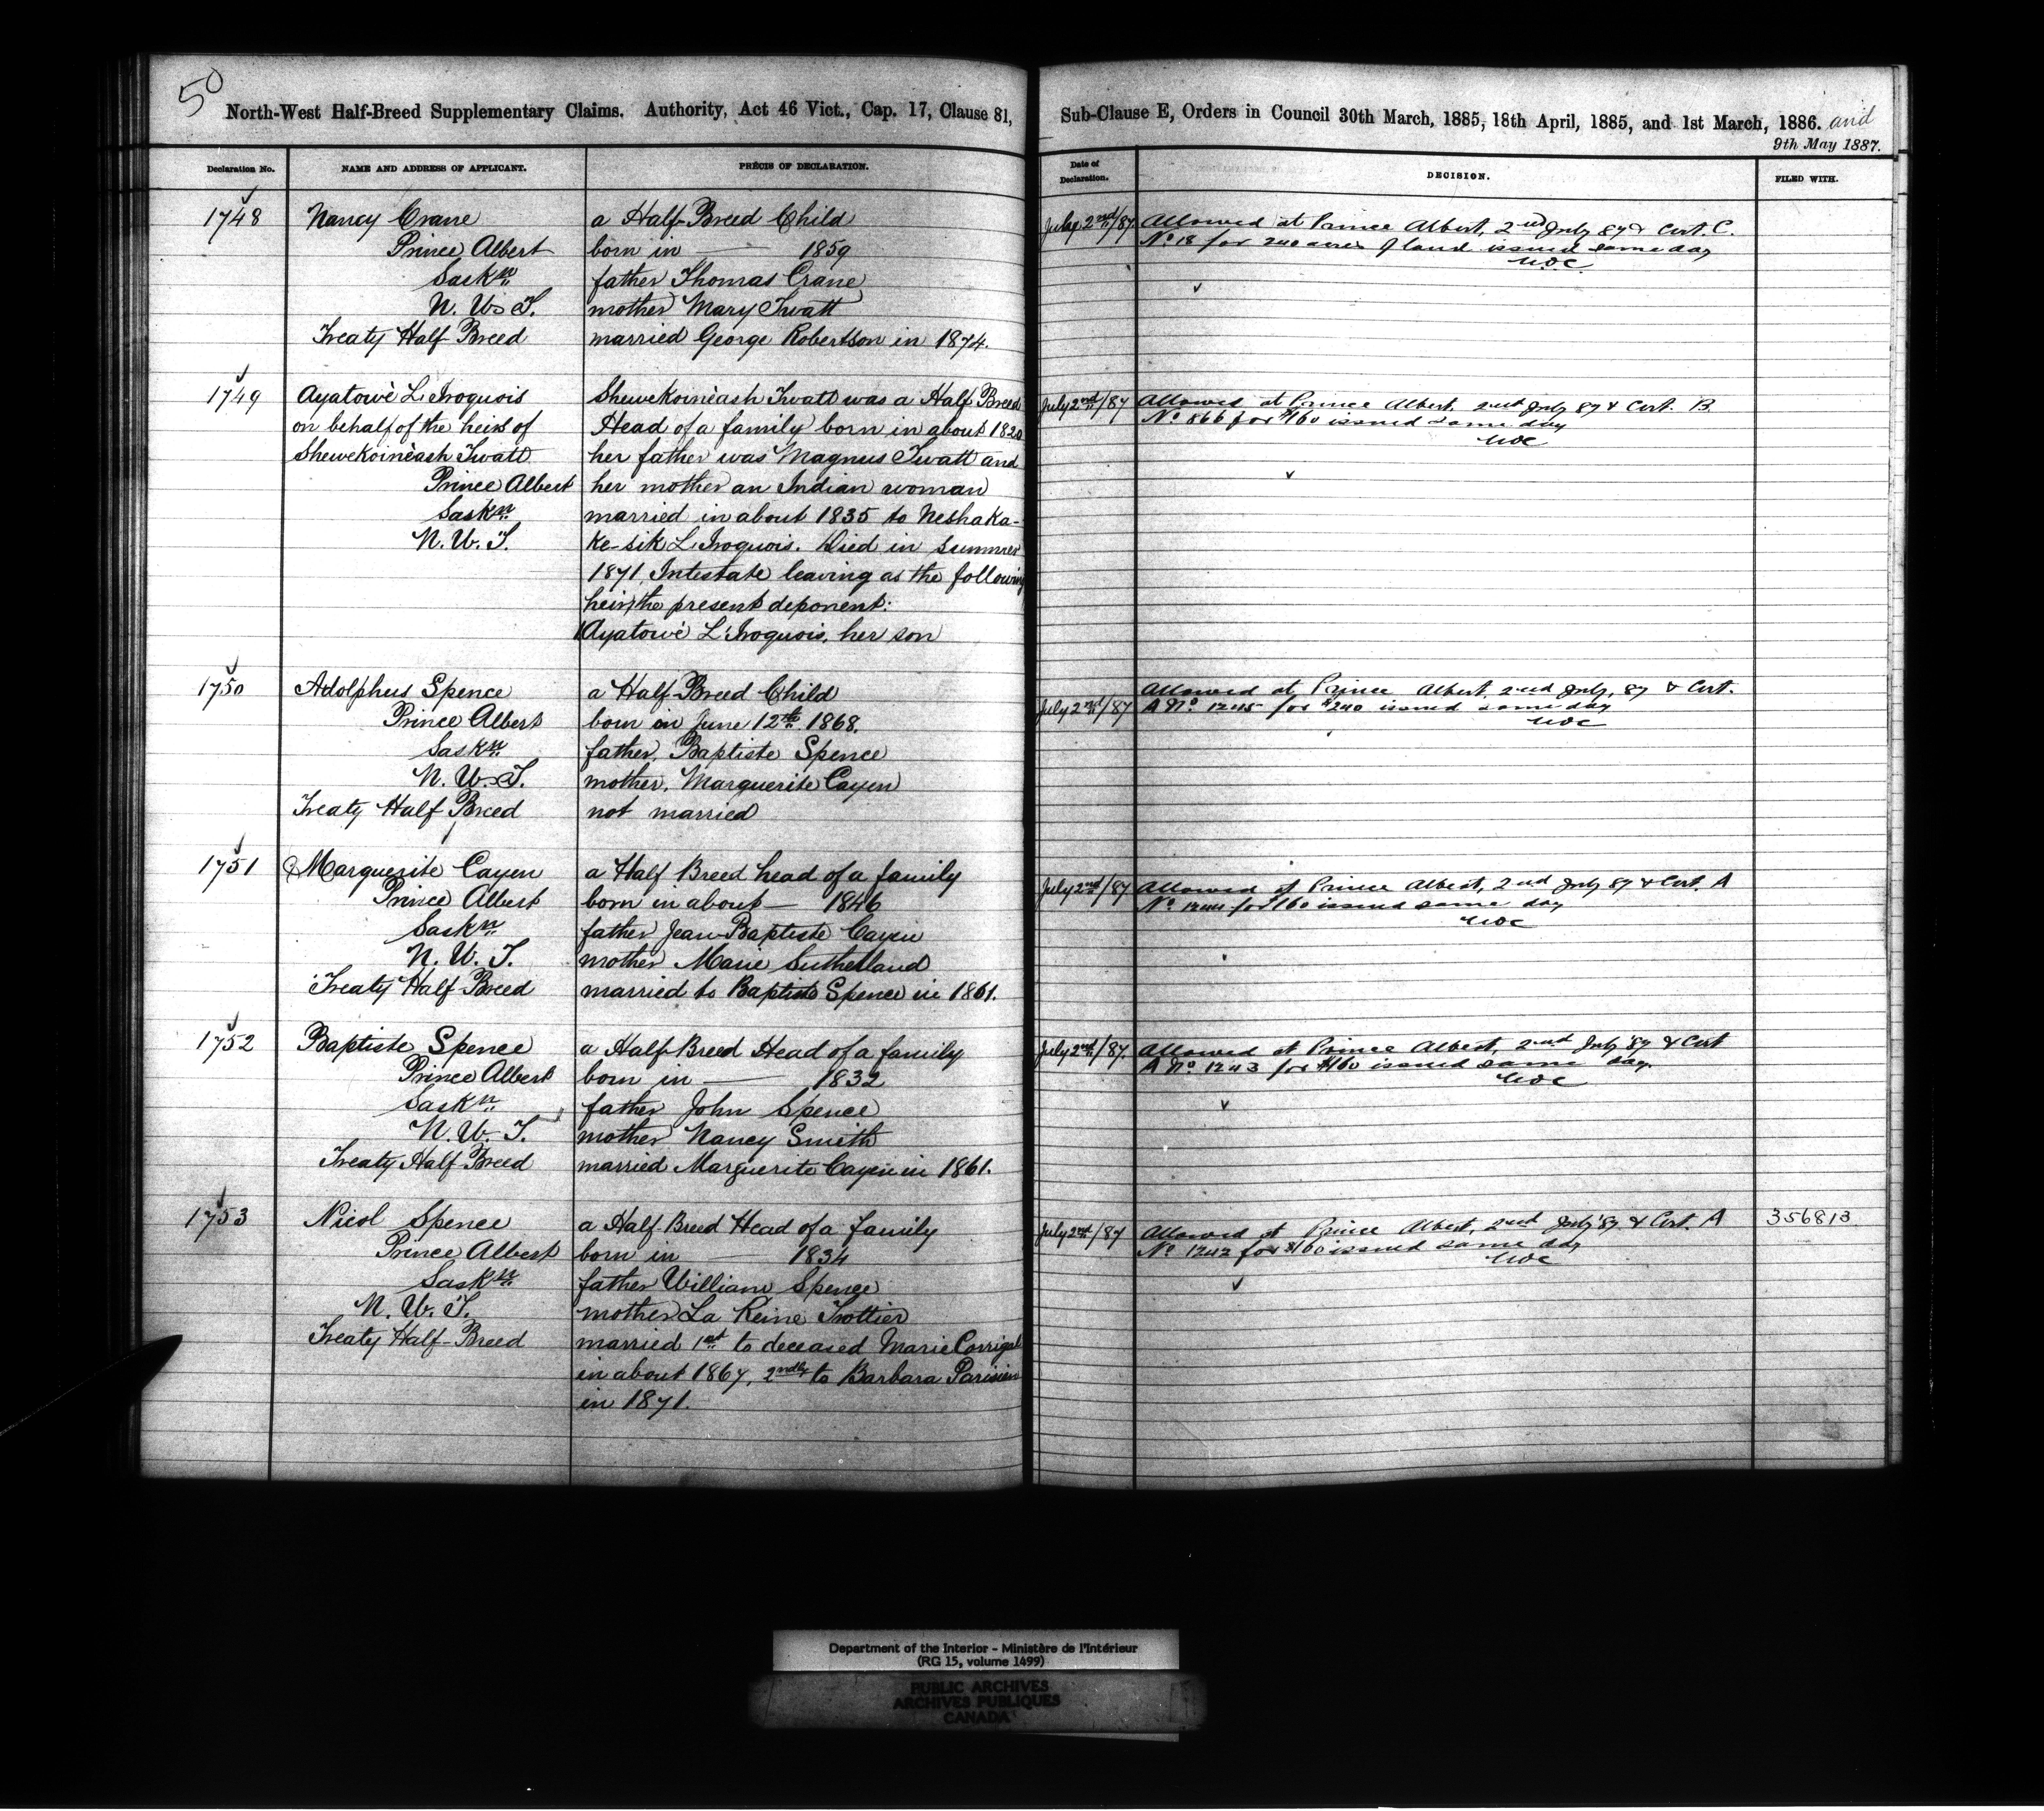 50
North-West Half-Breed Supplementary Claims. Authority, Act 46 Vict., Cap. 17, Clause 81,
Declaration No. NAME AND ADDRESS OF APPLICANT. PRÉCIS OF DECLARATION.
1748 Nancy Crane a Half-Breed Child
Prince Albert born in — 1859
Saskn father Thomas Crane
N. W. T. mother Mary Twatt
Treaty Half Breed married George Robertson in 1874.
1749 Ayatowè L'Iroquois Shewekoinèash Twatt was a Half Breed
on behalf of the heirs of Head of a family born in about 1820
Shewekoinèash Twatt her father was Magnus Twatt and
Prince Albert her mother an Indian woman
Saskn married in about 1835 to Neshaka-
N. W. T. ke-sik L'Iroquois. Died in summer
1871, Intestate leaving as the following
heir, the present deponent:
Ayatowè L'Iroquois, her son
1750 Adolphus Spence a Half-Breed Child
Prince Albert born on June 12th 1868.
Saskn father, Baptiste Spence
N. W. T. mother, Marguerite Cayen
Treaty Half Breed not married
1751 Marguerite Cayen a Half Breed head of a family
Prince Albert born in about — 1846
Saskn father Jean-Baptiste Cayen
N. W. T. mother Marie Sutherland
Treaty Half Breed married to Baptiste Spence in 1861.
1752 Baptiste Spence a Half-Breed Head of a family
Prince Albert born in — 1832
Saskn father John Spence
N. W. T. mother Nancy Smith
Treaty Half-Breed married Marguerite Cayen in 1861.
1753 Nicol Spence a Half-Breed Head of a family
Prince Albert born in — 1834
Saskn father William Spence
N. W. T. mother La Reine Trottier
Treaty Half-Breed married 1st to deceased Marie Corrigal
in about 1867, 2ndly to Barbara Parisien
in 1871.
Sub-Clause E, Orders in Council 30th March, 1885, 18th April, 1885, and 1st March, 1886. and
9th May 1887.
Date of Declaration. DECISION. FILED WITH.
July 2nd/87. Allowed at Prince Albert, 2nd July 87 & Cert. C.
No 18 for 240 acres of land issued same day
July 2nd/87 Allowed at Prince Albert, 2nd July 87 & Cert. B
No 866 for $160 issued same day
Allowed at Prince Albert, 2nd July, 87 & Cert.
July 2nd/87 A No 1245 for $240 issued same day
July 2nd/87 Allowed at Prince Albert, 2nd July 87 & Cert. A
No 1244 for $160 issued same day
July 2nd/87. Allowed at Prince Albert, 2nd July 87 & Cert
A No 1243 for $160 issued same day.
July 2nd/87 Allowed at Prince Albert, 2nd July 87 & Cert. A 356813
No 1242 for $160 issued same day
Department of the Interior - Ministère de l'Intérieur
(RG 15, volume 1499)
PUBLIC ARCHIVES
ARCHIVES PUBLIQUES
CANADA